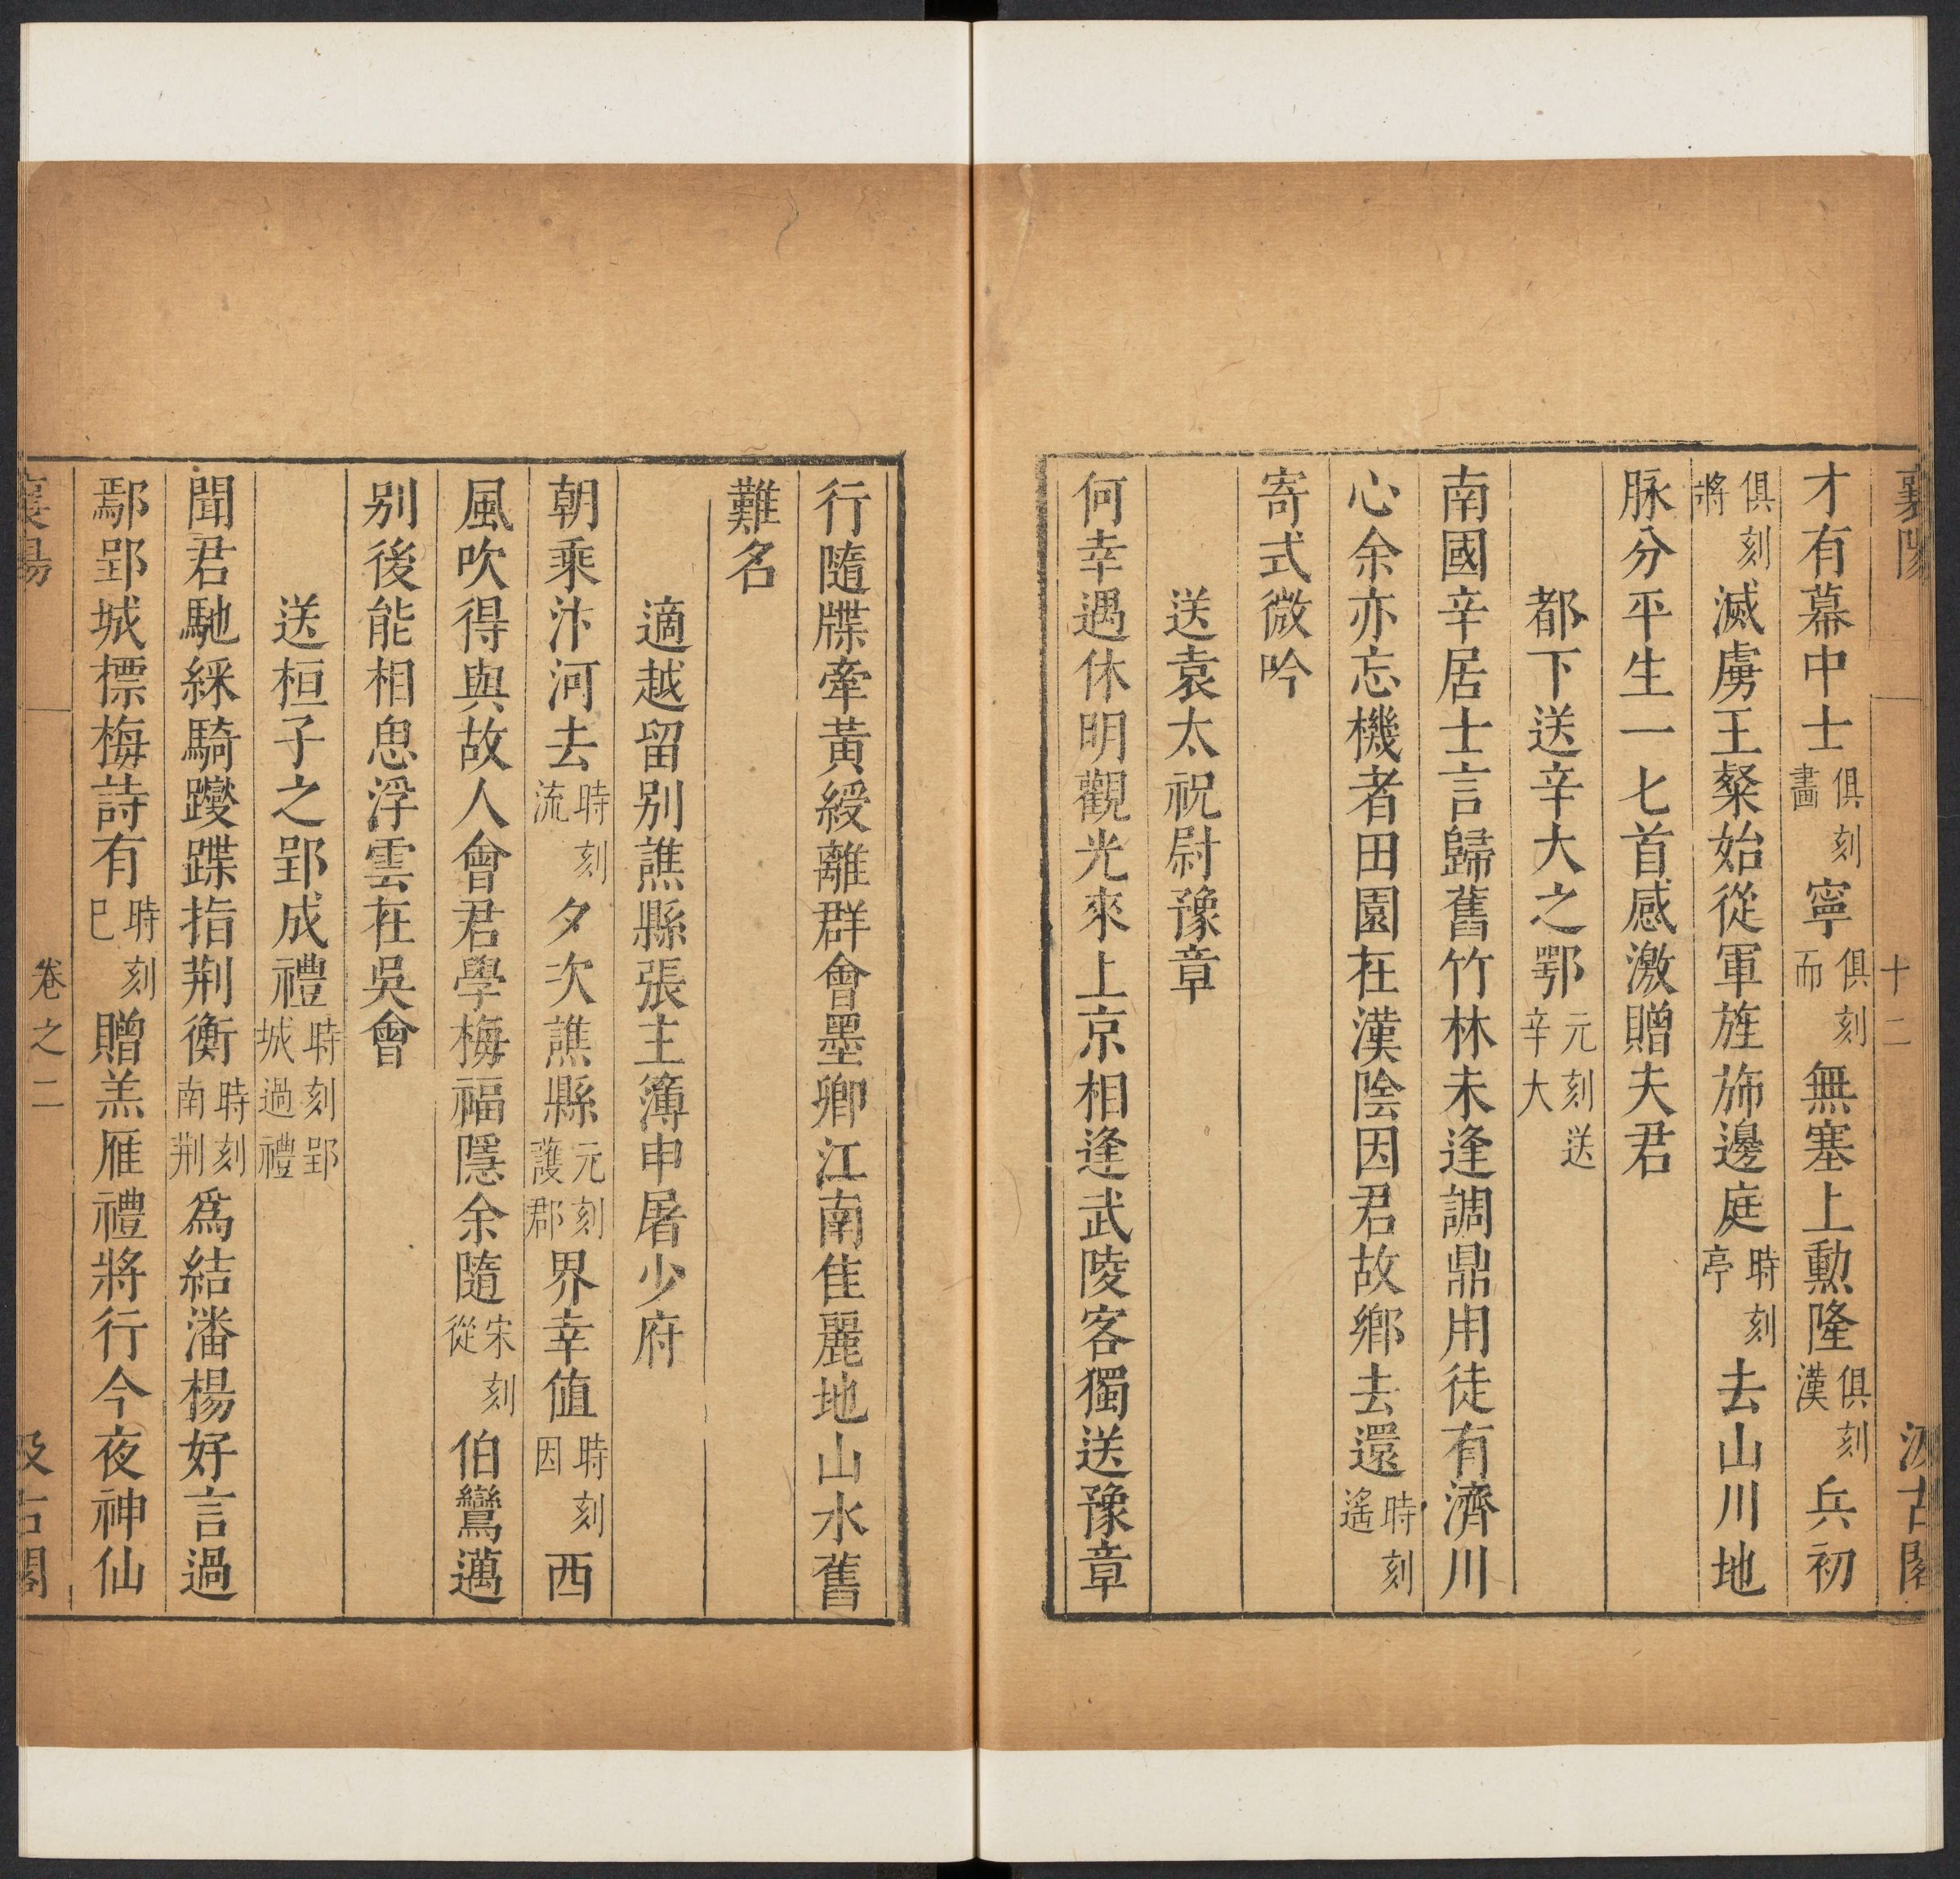 襄陽 十二 汲古閣
才有幕中士俱刻畫寧俱刻而無塞上勲隆俱刻漢兵初
俱刻將滅虜王粲始從軍旌旆邊庭時刻亭去山川地
脉分平生一匕首感激贈夫君
都下送辛大之鄂元刻送辛大
南國辛居士言歸舊竹林未逢調鼎用徒有濟川
心余亦忘機者田園在漢陰因君故鄉去還時刻遙
寄式微吟
送袁太祝尉豫章
何幸遇休明觀光來上京相逢武陵客獨送豫章
行隨牒牽黃綬離群會墨卿江南佳麗地山水舊
難名
適越留别譙縣張主簿申屠少府
朝乘汴河去時刻流夕次譙縣元刻護郡界幸值時刻因西
風吹得與故人會君學梅福隱余隨宋刻從伯鸞邁
别後能相思浮雲在吳會
送桓子之郢成禮時刻郢城過禮
聞君馳綵騎躞蹀指荆衡時刻南荆爲結潘楊好言過
鄢郢城標梅詩有時刻已贈羔雁禮將行今夜神仙
襄陽 卷之二 汲古閣